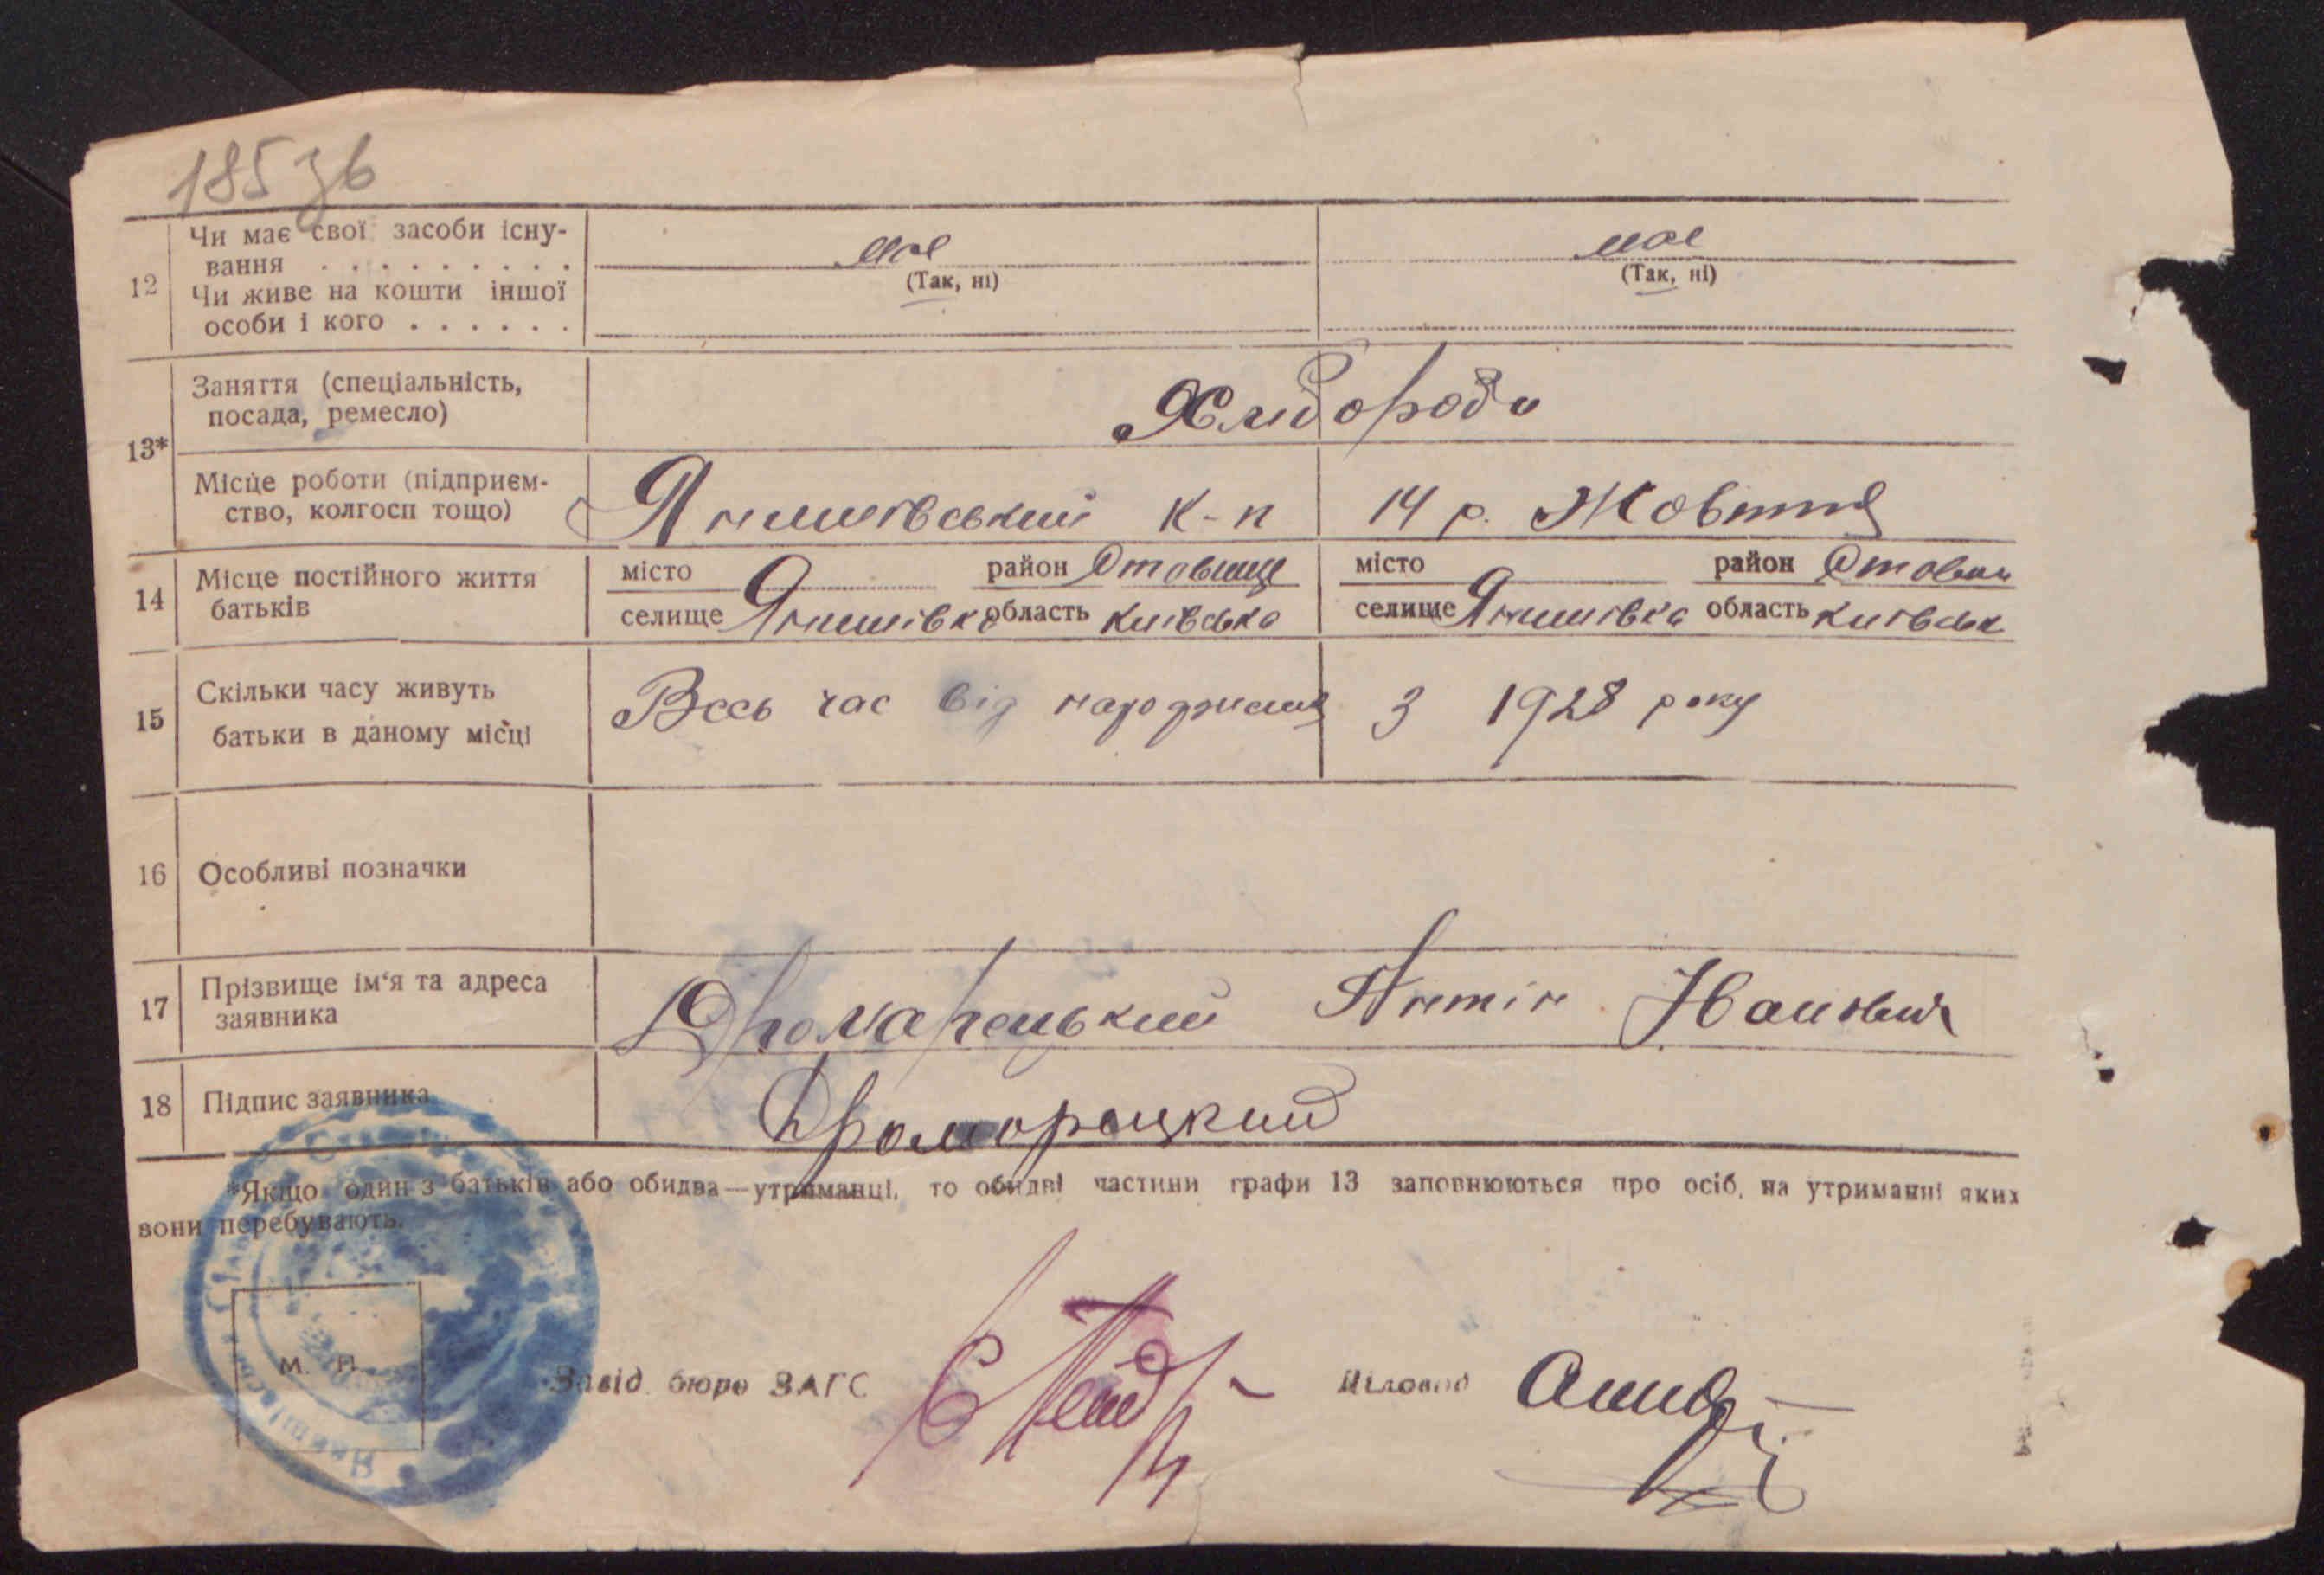 185 зв
12 Чи має свої засоби існу-
вання . . . . . . . . . має має
Чи живе на кошти іншої (Так, ні) (Так, ні)
особи і кого . . . . . .
13* Заняття (спеціальність,
посада, ремесло) Хлібороби
Місце роботи (підприєм-
ство, колгосп тощо) к-п 14 р. Жовтня
14 Місце постійного життя
батьків
місто район місто район
селище область київська селище область київськ
15 Скільки часу живуть
батьки в даному місці
Весь час від народження з 1928 року
16 Особливі позначки
17 Прізвище ім'я та адреса
заявника
Дромарецький Антін Іванович
18 Підпис заявника Дроморецкий
*Якщо один з батьків або обидва—утриманці, то обидві частини графи 13 заповнюються про осіб, на утриманні яких
вони перебувають.
М. П.
Завід. бюро ЗАГС Діловод